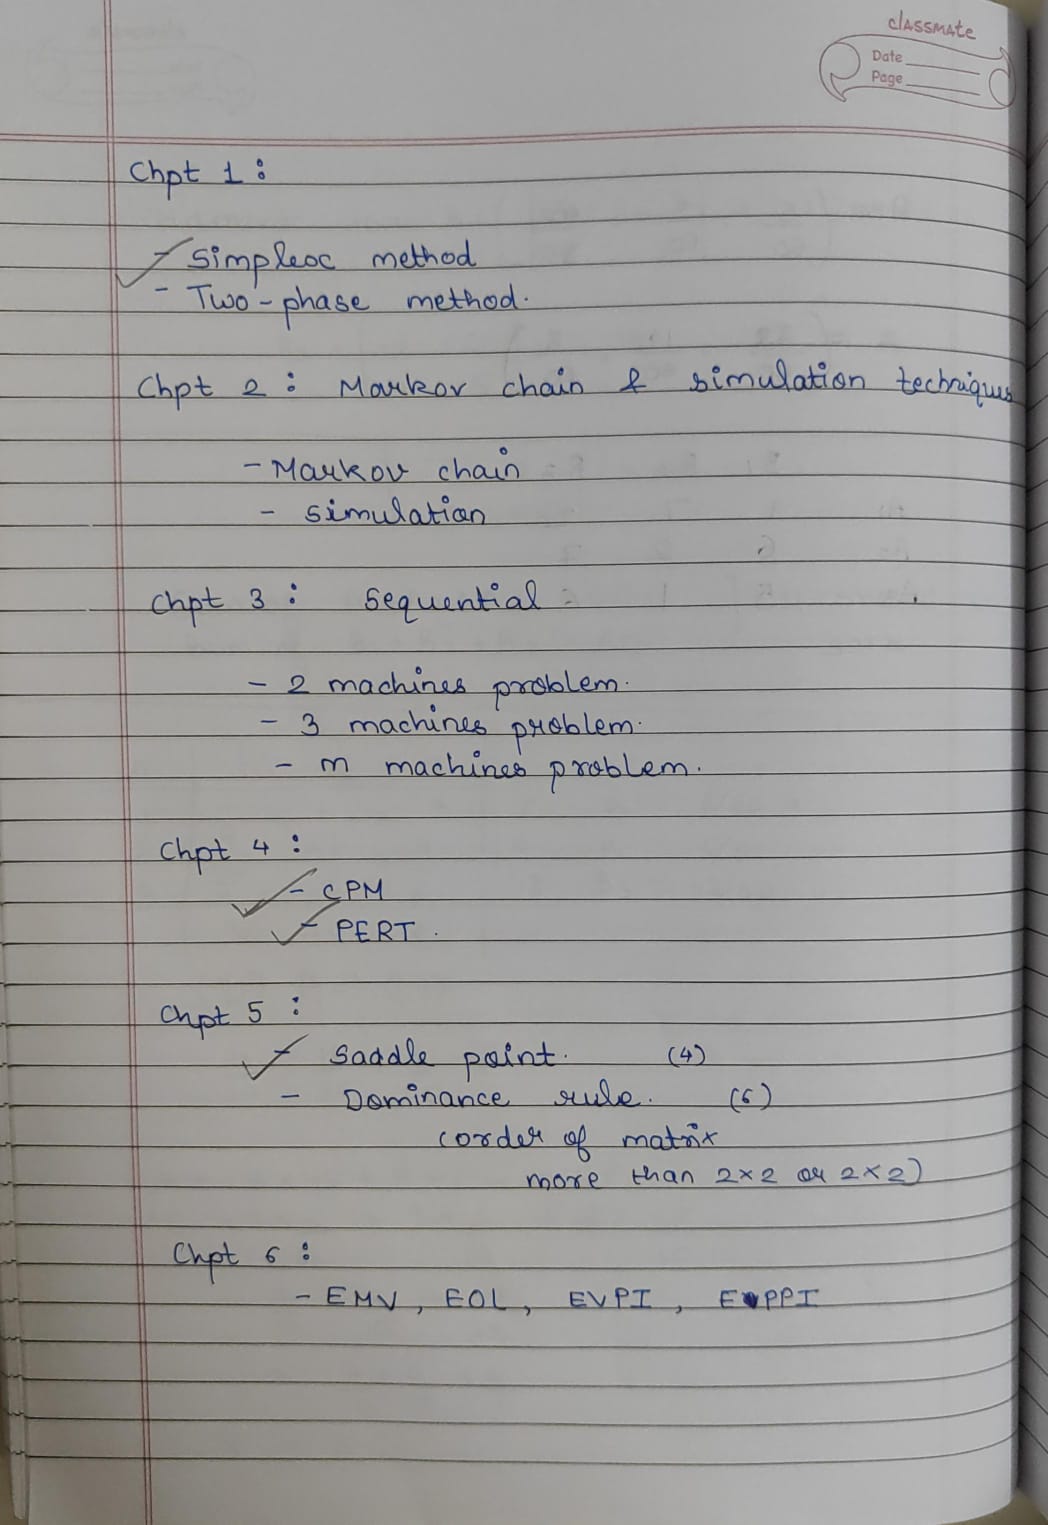 classmate
Date
Page
Chpt 1 :
- Simplex method
- Two-phase method.
Chpt 2 : Markov chain & simulation techniques
- Markov chain
- simulation
Chpt 3 : Sequential
- 2 machines problem.
- 3 machines problem.
- m machines problem.
Chpt 4 :
- CPM
- PERT .
Chpt 5 :
- Saddle point. (4)
- Dominance rule. (6)
(order of matrix
more than 2×2 or 2×2)
Chpt 6 :
- EMV, EOL, EVPI, EPPI